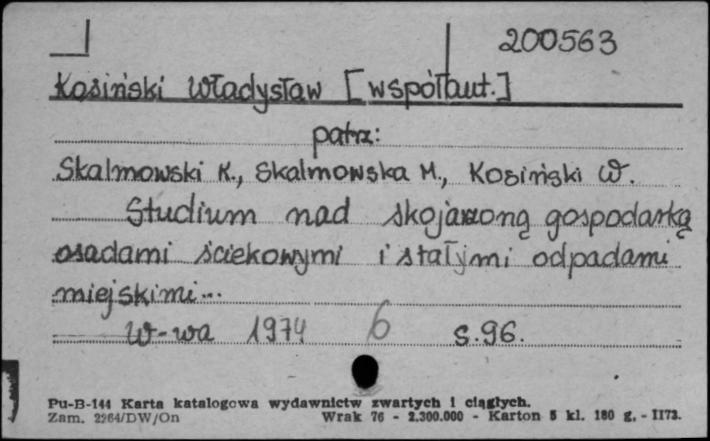 200563
Kosiński Władysław [współaut.]
patrz:
Skalmowski K., Skalmowska M., Kosiński W.
Studium nad skojarzoną gospodarką
osadami ściekowymi i stałymi odpadami
miejskimi...
W-wa 1974 6 s.96.
Pu-B-144 Karta katalogowa wydawnictw zwartych i ciągłych.
Zam. 2264/DW/On Wrak 76 - 2.300.000 - Karton 5 kl. 180 g. - II73.